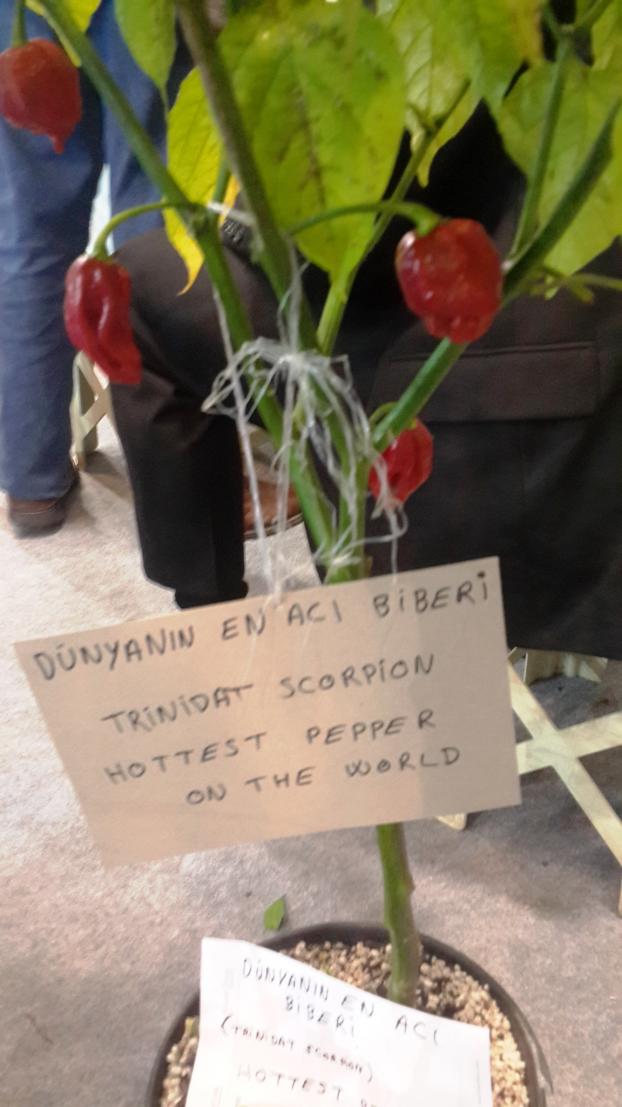 DÜNYANIN EN ACI BİBERİ
TRİNİDAT SCORPİON
HOTTEST PEPPER
ON THE WORLD
DÜNYANIN EN ACI
BİBERİ
(TRİNİDAT SCORPİON)
HOTTEST